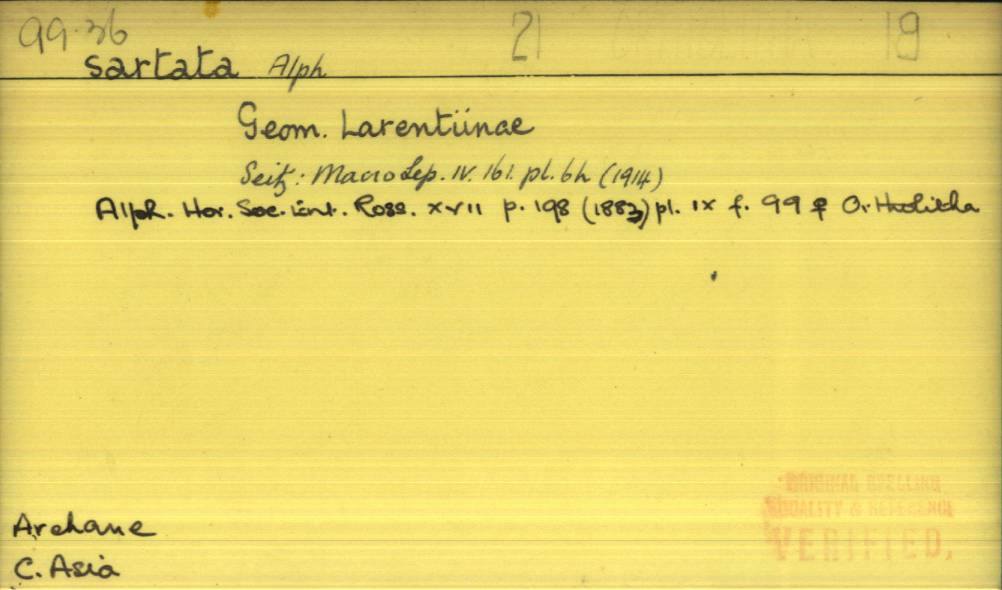 99.36 21 19
sartata Alph
Geom. Larentiinae
Seitz: Macro Lep. IV. 161. pl. 6h (1914)
Alph. Hor. Soc. Ent. Ross. xvii p. 198 (1883) pl. ix f. 99 ♀ Ortholitha
Archane
C. Asia
ORIGINAL SPELLING
LOCALITY & REFERENCE
VERIFIED.